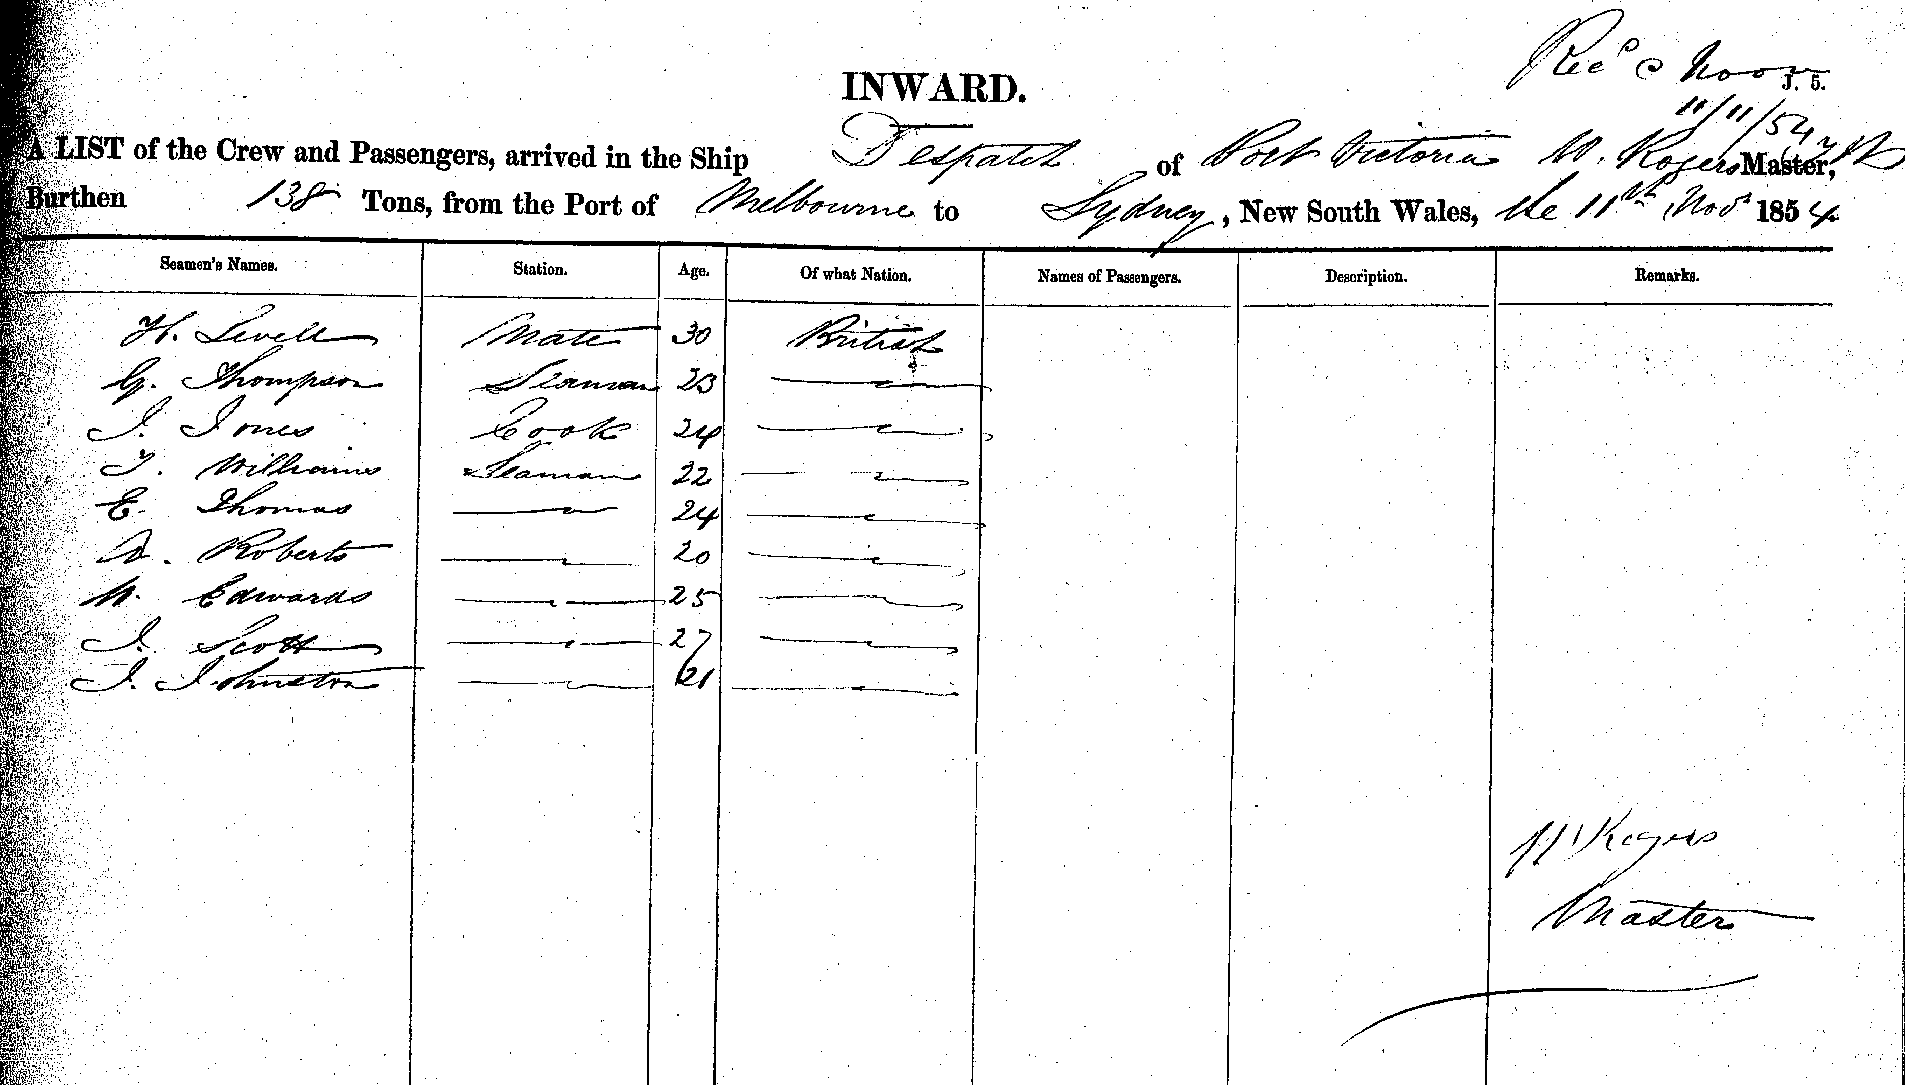 Recd @ Noon
J. 5.
11/11/54
INWARD.
A LIST of the Crew and Passengers, arrived in the Ship Despatch of Port Victoria W. Rogers Master,
Burthen 138 Tons, from the Port of Melbourne to Sydney, New South Wales, the 11th Novr 1854
Seamen's Names. Station. Age. Of what Nation. Names of Passengers. Description. Remarks.
H. Sewell Mate 30 British
G. Thompson Seaman 23
J. Jones Cook 24
T. Williams Seaman 22
E. Thomas 24
Roberts 20
W. Edwards 25
J. Scott 27
J. Johnston 21
W Rogers
Master